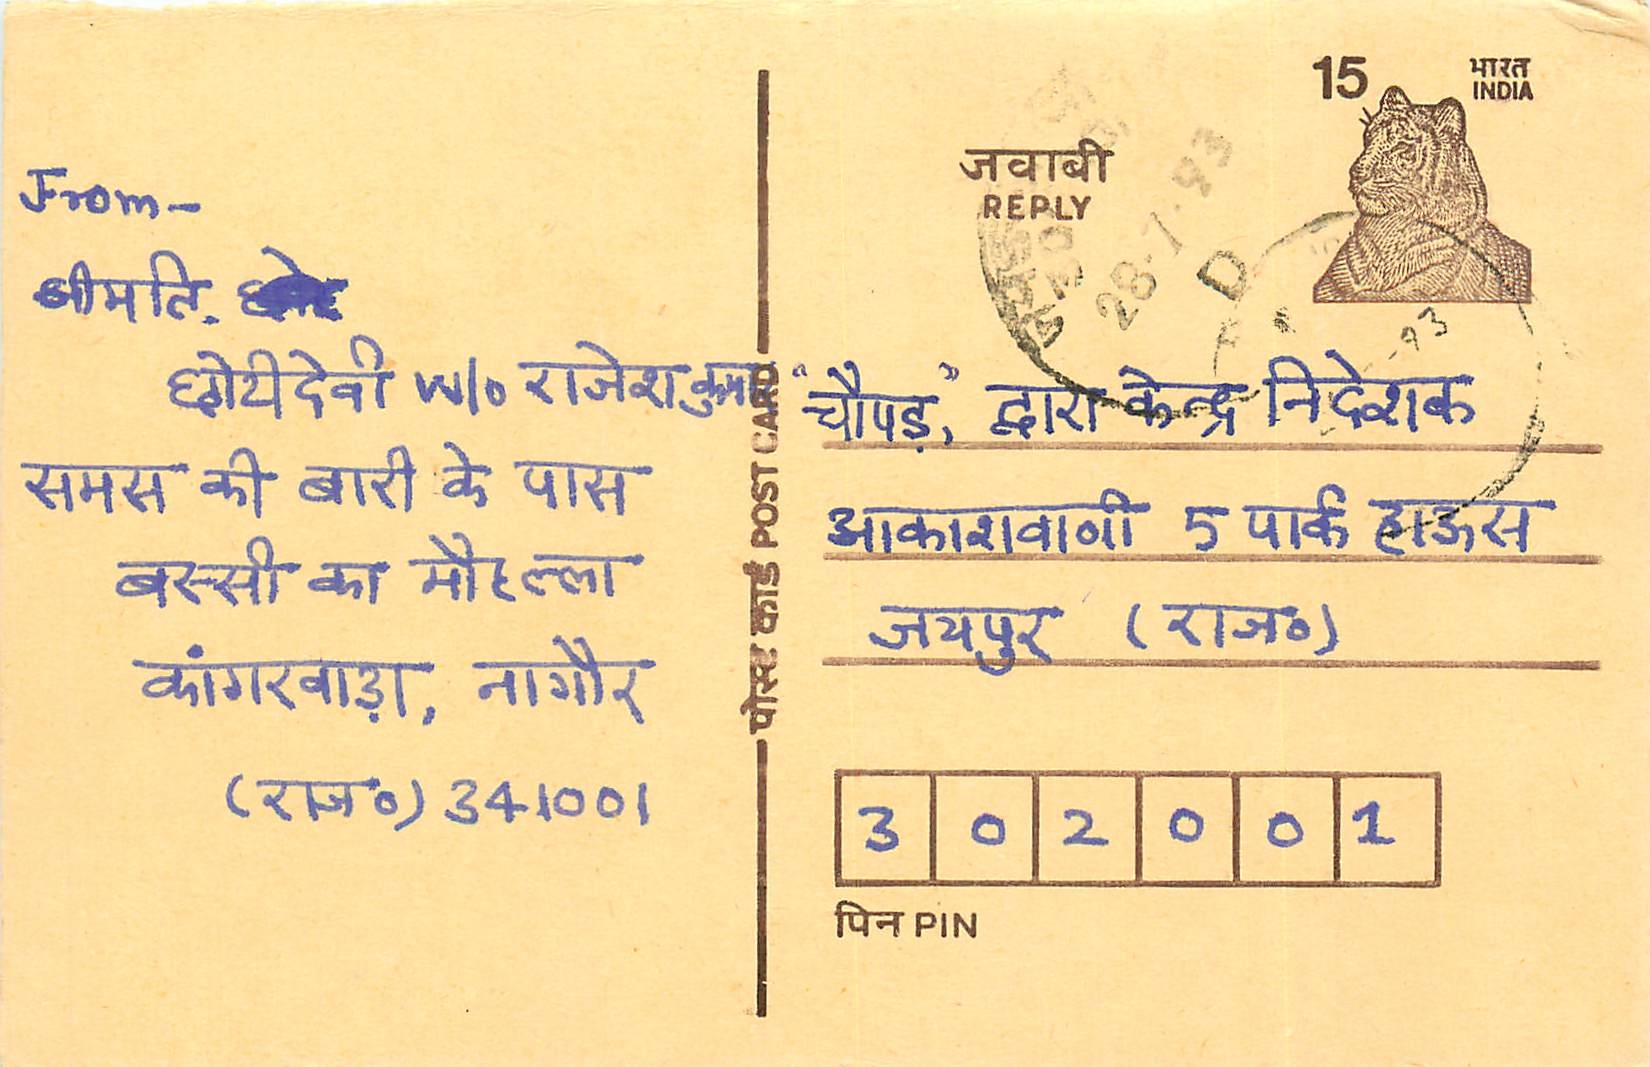 15 भारत
INDIA
जवाबी
REPLY
28.7.93
D
-93
From-
श्रीमति.
छोटीदेवी w/o राजेशकुमार
समस की बारी के पास
बस्सी का मौहल्ला
कांगरवाड़ा, नागौर
(राज०) 341001
पोस्ट कार्ड POST CARD
"चौपड़", द्वारा केन्द्र निदेशक
आकाशवाणी 5 पार्क हाऊस
जयपुर (राज०)
3 0 2 0 0 1
पिन PIN